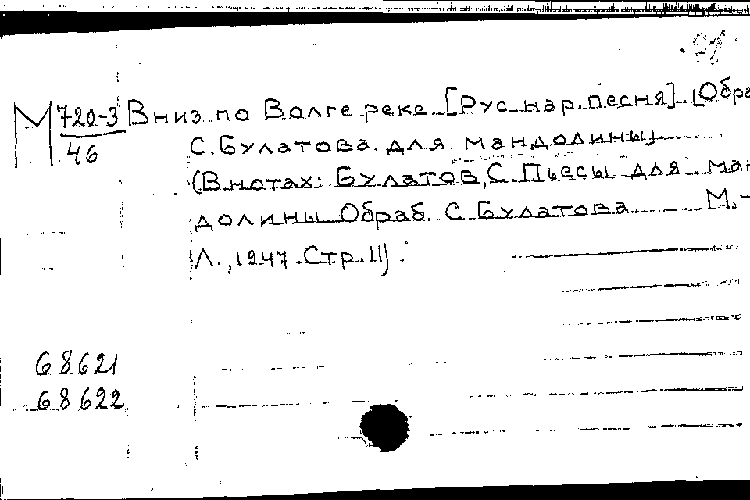 М 720-3 Вниз по Волге реке [Рус. нар. песня]. [Обра
46 С. Булатова для мандолины
(В нотах: Булатов, С. Пьесы для ман
долины Обраб. С. Булатова М.-
Л., 1947. Стр. 11).
68621
68622